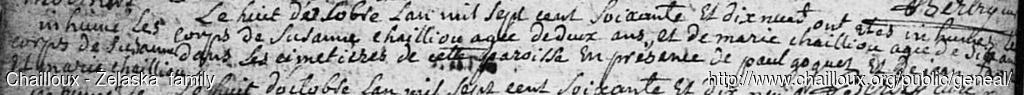 inhumé les
corps de Susanne
et marie chaillou
Le huit doctobre Lan mil sept cent soixante et dix neuf ont etes inhumes les
corps de Susanne chailliou agee de deux ans, et de marie chailliou agee de dix
dans les cimetieres de cette paroisse en presence de paul goguet et de
huit doctobre Lan mil sept cent soixante et dix
Chailloux - Zelaska family
http://www.chailloux.org/public/geneal/